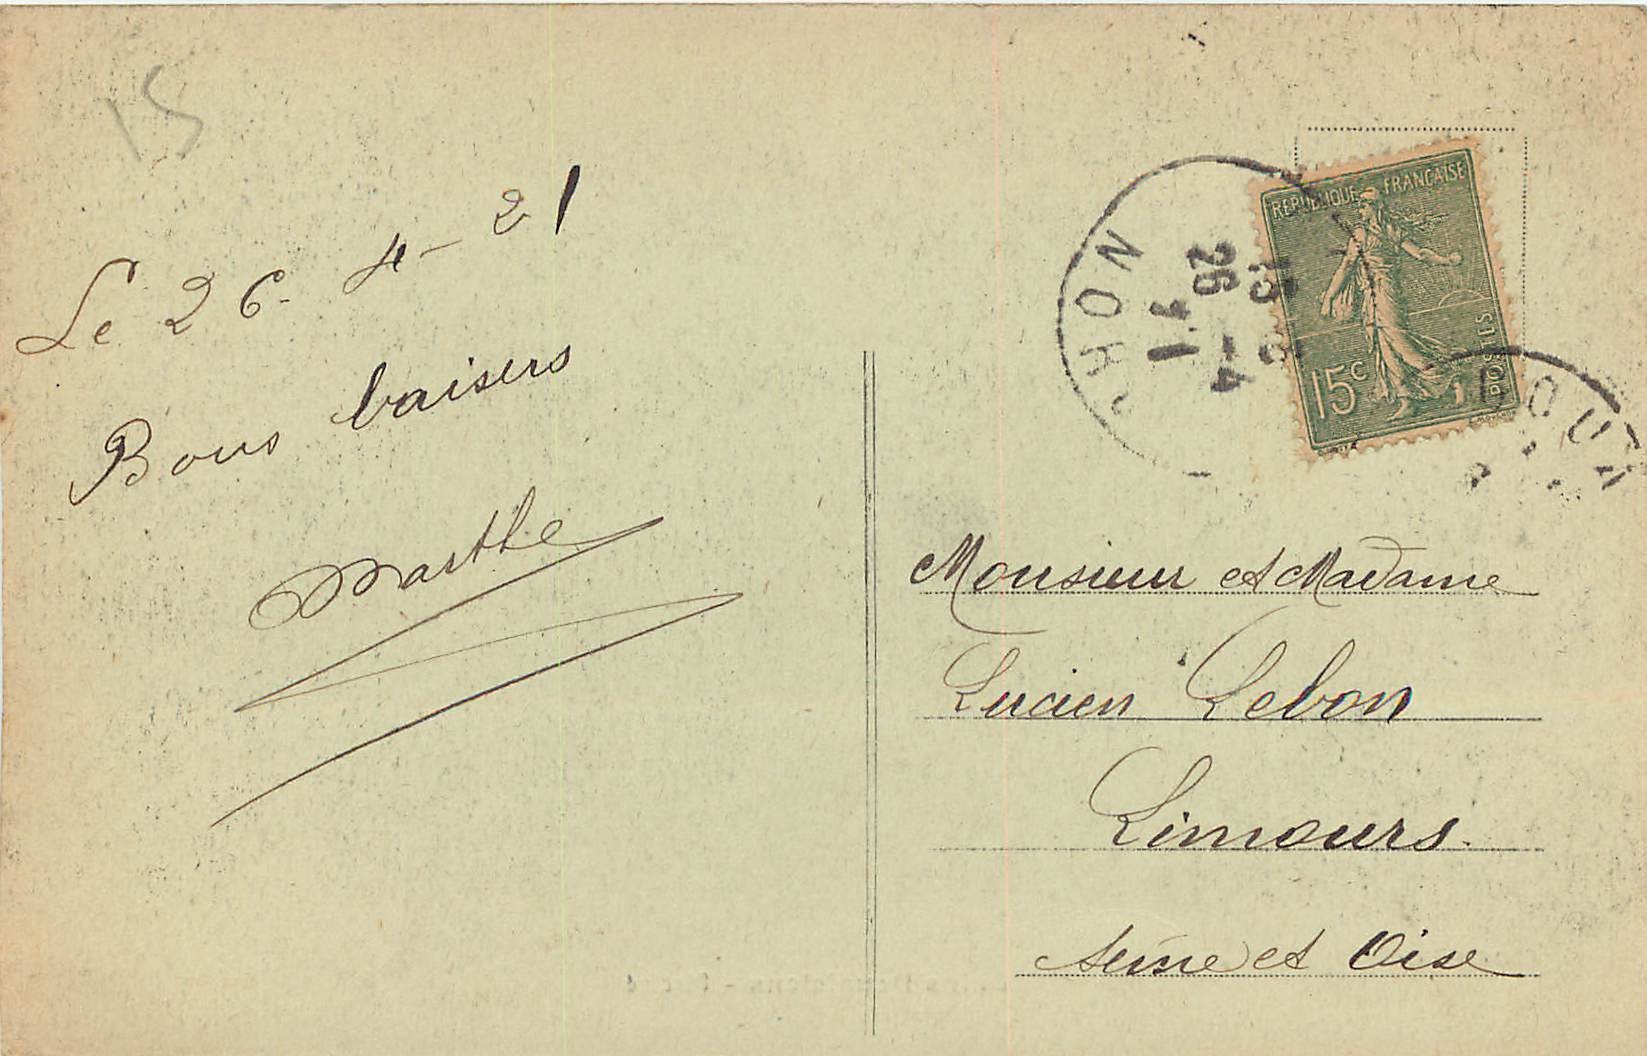 15
Le 26 - 4 - 21
Bons baisers
Marthe
REPUBLIQUE FRANÇAISE
POSTES
15c
26 - 4
Monsieur et Madame
Lucien Lebon
Limours.
Seine et Oise